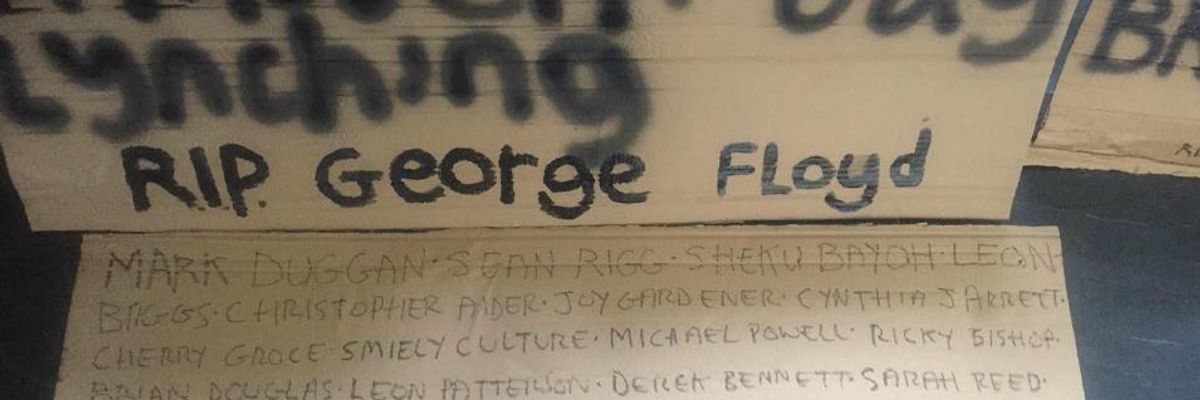 Lynching
RIP George Floyd
MARK DUGGAN·SEAN RIGG·SHEKU BAYOH·LEON
BRIGGS·CHRISTOPHER ALDER·JOY GARDENER·CYNTHIA JARRETT·
CHERRY GROCE·SMIELY CULTURE·MICHAEL POWELL·RICKY BISHOP·
BRIAN DOUGLAS·LEON PATTERSON·DEREK BENNETT·SARAH REED·